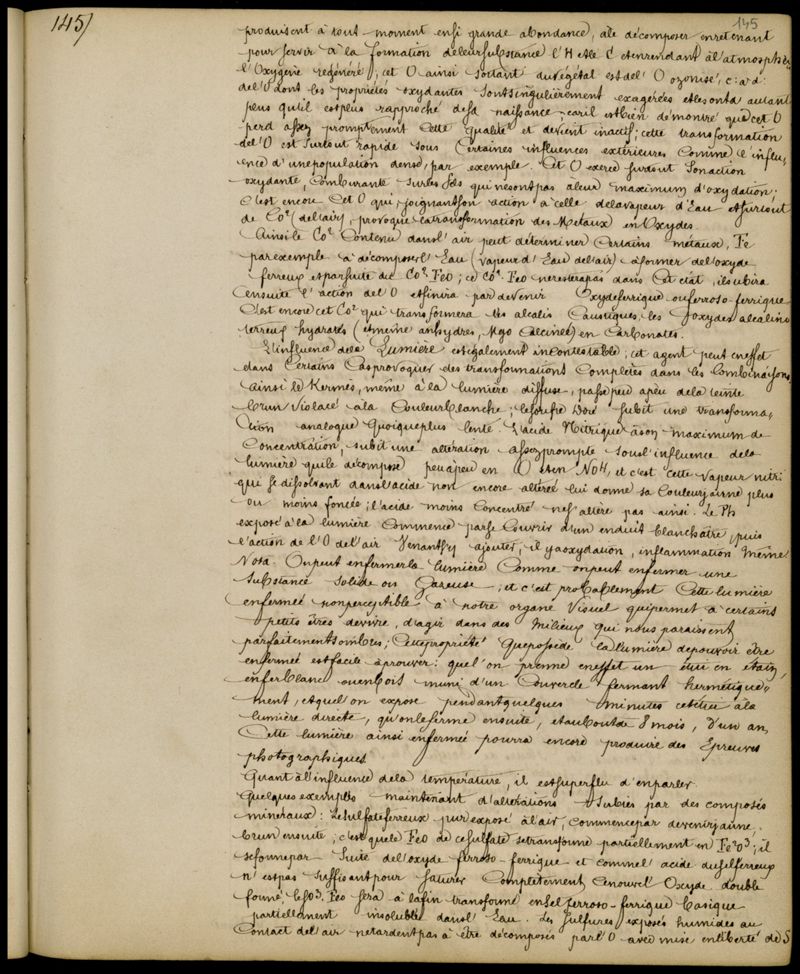 145/
145
produisent à tout moment en si grande abondance, a le décomposer en retenant
pour servir à la formation de leur substance l'H et le C et en rendant à l'atmosphère
l'Oxygène régénéré; cet O ainsi sortant du végétal est de l'O ozonisé, c: a: d:
de l'O dont les propriétés oxydantes sont singulièrement exagérées et le sont d'autant
plus qu'il est plus rapproché de sa naissance; car il est bien démontré que cet O
perd assez promptement cette qualité et devient inactif; cette transformation
de l'O est surtout rapide sous certaines influences extérieures comme l'influ-
ence d'une population dense, par exemple. Cet O exerce surtout son action
oxydante, comburante sur les sels qui ne sont pas à leur maximum d'oxydation;
c'est encore cet O qui, joignant son action à celle de la vapeur d'Eau et surtout
de Co² (de l'air), provoque la transformation des Métaux en Oxydes.
Ainsi le Co² contenu dans l'air peut déterminer certains métaux, Fe
par exemple à décomposer l'Eau (vapeur d'Eau de l'air) à former de l'oxyde
ferreux et par suite du Co², FeO; ce Co², FeO ne restera pas dans cet état, il subira
ensuite l'action de l'O et finira par devenir Oxyde ferrique ou ferroso-ferrique
C'est encore cet Co² qui transformera les alcalis caustiques, les oxydes alcalino
terreux hydratés (et même anhydres, MgO calcinée) en Carbonates.
L'influence de la Lumière est également incontestable; cet agent peut en effet
dans certains cas provoquer des transformations complètes dans les combinaisons.
Ainsi le Kermès, même à la lumière diffuse, passe peu à peu de la teinte
brun violacé à la couleur blanche; le soufre doré subit une transforma-
tion analogue quoique plus lente. L'acide Nitrique à son maximum de
Concentration, subit une altération assez prompte sous l'influence de la
lumière qui le décompose peu à peu en O et en NO4, et c'est cette vapeur nitri
qui se dissolvant dans l'acide non encore altéré lui donne sa couleur jaune plus
ou moins foncée; l'acide moins concentré ne s'altère pas ainsi. Le Ph
exposé à la lumière commence par se couvrir d'un enduit blanchâtre, puis
l'action de l'O de l'air venant s'y ajouter, il y a oxydation, inflammation même
Nota. On peut enfermer la lumière comme on peut enfermer une
substance solide ou gazeuse; et c'est probablement cette lumière
enfermée non perceptible à notre organe visuel qui permet à certains
petits êtres de vivre, d'agir dans des milieux qui nous paraissent
parfaitement sombres; cette propriété que possède la lumière de pouvoir être
enfermée est facile à prouver: que l'on prenne en effet un étui en étain,
en fer blanc ou en bois muni d'un couvercle fermant hermétique-
ment, et que l'on expose pendant quelques minutes cet étui à la
lumière directe, qu'on le ferme ensuite, et au bout de 8 mois, d'un an
cette lumière ainsi enfermée pourra encore produire des Epreuves
photographiques
Quant à l'influence de la température, il est superflu d'en parler.
Quelques exemples maintenant d'altérations subies par des composés
minéraux: le sulfate ferreux pur exposé à l'air, commence par devenir jaune,
brun ensuite; c'est que le FeO de ce sulfate se transforme partiellement en Fe²o³; il
se forme par suite de l'oxyde ferroso-ferrique et comme l'acide du sel ferreux
n'est pas suffisant pour saturer complètement ce nouvel Oxyde double
formé le So³, Feo sera à la fin transformé en sel ferroso-ferrique basique
partiellement insoluble dans l'Eau. Les Sulfures exposés humides au
contact de l'air ne tardent pas à être décomposés par l'O avec mise en liberté de S